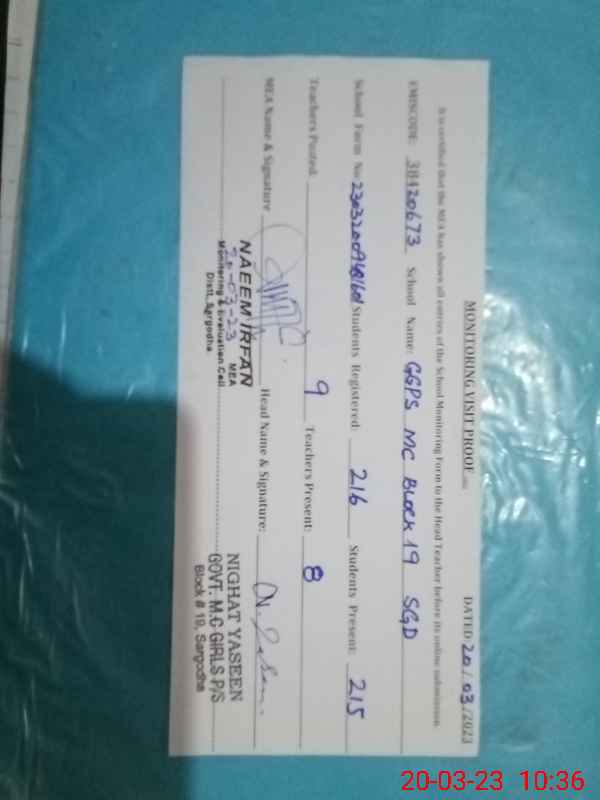 MONITORING VISIT PROOF
DATED 20/03/2023
It is certified that the MEA has shown all entries of the School Monitoring Form to the Head Teacher before its online submission.
EMISCODE: 38420673 School Name: GGPS MC Block 19 SGD
School Form No Students Registered: 216 Students Present: 215
Teachers Posted: 9 Teachers Present: 8
MEA Name & Signature Head Name & Signature:
NAEEM IRFAN
MEA
20-03-23
Monitoring & Evaluation Cell
Distt. Sargodha
NIGHAT YASEEN
GOVT. M.C GIRLS P/S
Block # 19, Sargodha
20-03-23 10:36